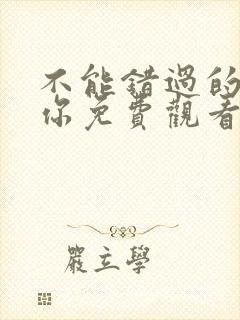 不能錯過的
你免費觀看
嚴立學